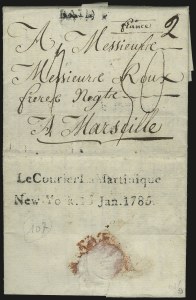 franca
2
A Messieurs
Messieurs Roux
freres Negts
A Marseille
Le Courrier La Martinique
New-York, Jan. 1785.